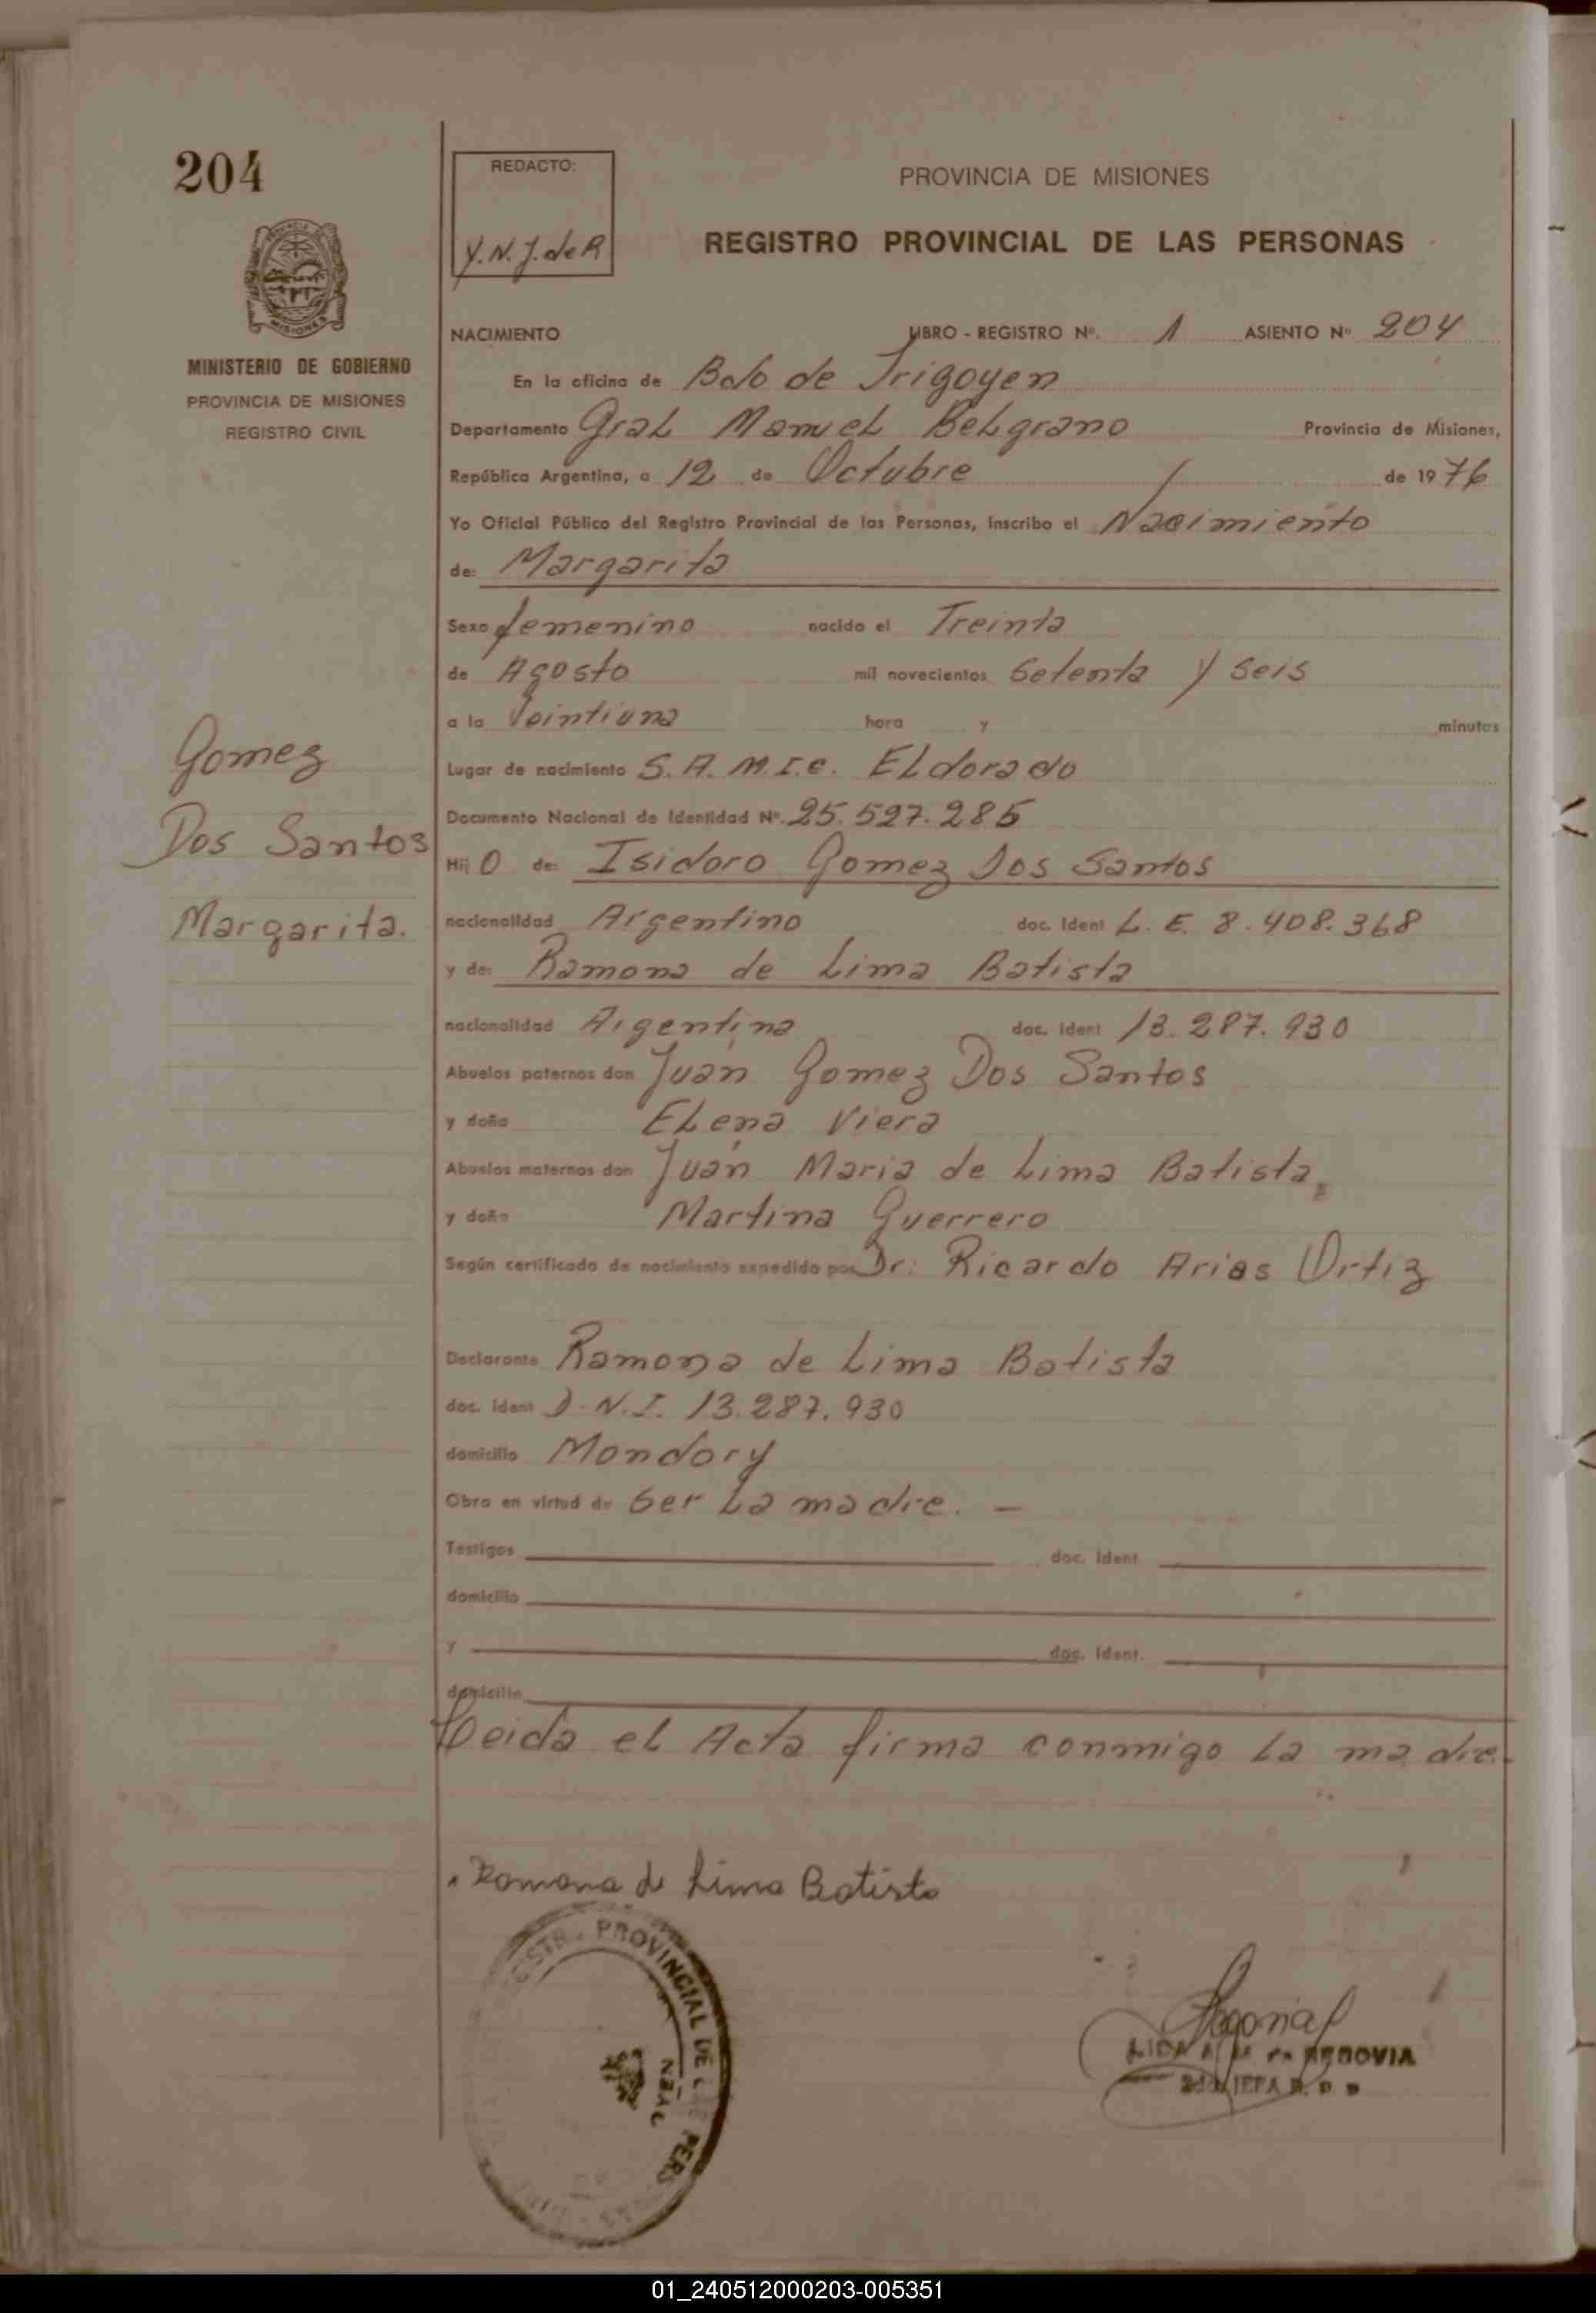 204
REDACTO:
Y.N.J. de R
PROVINCIA DE MISIONES
REGISTRO PROVINCIAL DE LAS PERSONAS
PROVINCIA DE MISIONES
MINISTERIO DE GOBIERNO
PROVINCIA DE MISIONES
REGISTRO CIVIL
NACIMIENTO LIBRO - REGISTRO Nº. 1 ASIENTO Nº 204
En la oficina de Bdo de Irigoyen
Departamento Gral Manuel Belgrano Provincia de Misiones,
República Argentina, a 12 de Octubre de 1976
Yo Oficial Público del Registro Provincial de las Personas, Inscribo el Nacimiento
de: Margarita
Sexo femenino nacido el Treinta
de Agosto mil novecientos Setenta y Seis
a la Veintiuna hora y minutos
Lugar de nacimiento S.A.M.I.C. Eldorado
Documento Nacional de Identidad Nº. 25.527.285
Hij O de: Isidoro Gomez Dos Santos
nacionalidad Argentino doc. Ident L.E. 8.408.368
y de: Ramona de Lima Batista
nacionalidad Argentina doc. Ident 13.287.930
Abuelos paternos don Juan Gomez Dos Santos
y doña Elena Viera
Abuelos maternos don Juan Maria de Lima Batista
y doña Martina Guerrero
Según certificado de nacimiento expedido por Dr: Ricardo Arias Ortiz
Declarante Ramona de Lima Batista
doc. Ident D.N.I. 13.287.930
domicilio Mondory
Obra en virtud de Ser La madre. —
Testigos doc. Ident
domicilio
y doc. Ident.
domicilio
Leida el Acta firma conmigo La madre.
Gomez
Dos Santos
Margarita.
Ramona de Lima Batista
PROVINCIAL DE PERS
SEGOVIA
JEFA
01_240512000203-005351